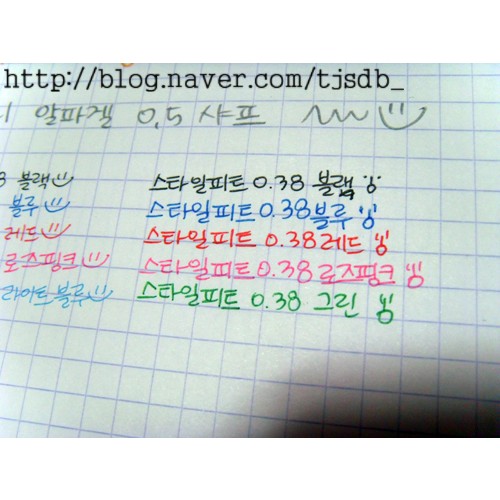 http://blog.naver.com/tjsdb_
알파겔 0.5 샤프
블랙 스타일피트 0.38 블랙
블루 스타일피트 0.38 블루
레드 스타일피트 0.38 레드
로즈핑크 스타일피트 0.38 로즈핑크
라이트블루 스타일피트 0.38 그린